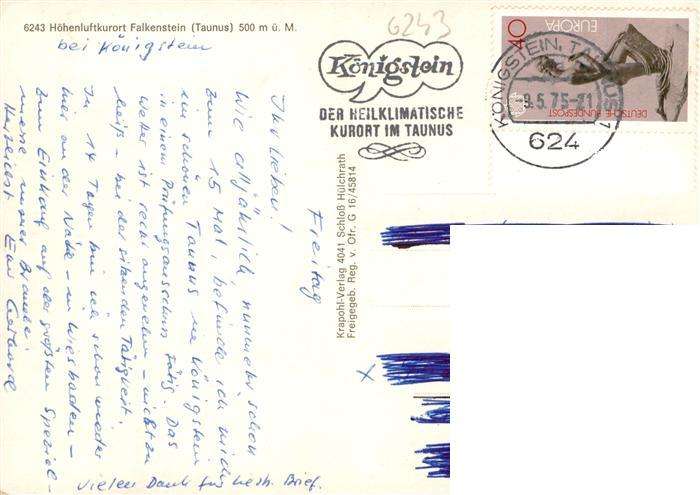 6243 Höhenluftkurort Falkenstein (Taunus) 500 m ü. M.
bei Königstein
6243
Königstein
DER HEILKLIMATISCHE
KURORT IM TAUNUS
40
EUROPA
DEUTSCHE BUNDESPOST
KÖNIGSTEIN, TAUNUS 1
9.5.75-21
624
Krapohl-Verlag 4041 Schloß Hülchrath
Freigegeb. Reg. v. Ofr. G 16/45814
Freitag
Ihr Lieben!
Wie alljährlich nunmehr schon
zum 15 Mal, befinde ich mich
im schönen Taunus in Königstein
in einem Prüfungsausschuss tätig. Das
Wetter ist recht angenehm - nicht zu
heiß - bei der sitzenden Tätigkeit.
In 14 Tagen bin ich schon wieder
hier an der Nähe - in Wiesbaden -
zum Einkauf auf der größten Spezial-
messe meiner Branche.
Herzlichst Euer Gerhard
Vielen Dank für Brief.
X